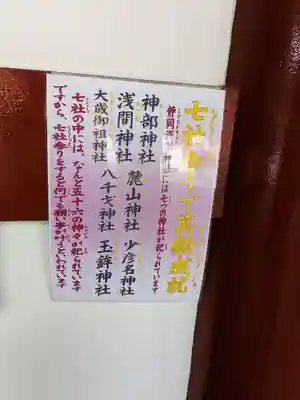 七社参りで萬願成就
静岡浅間神社には七つの神社が祀られています
神部神社
浅間神社 麓山神社 少彦名神社
大歳御祖神社 八千戈神社 玉鉾神社
七社の中には、なんと五十六の神々が祀られています
ですから、七社参りをすると何でも願い事が叶うといわれています